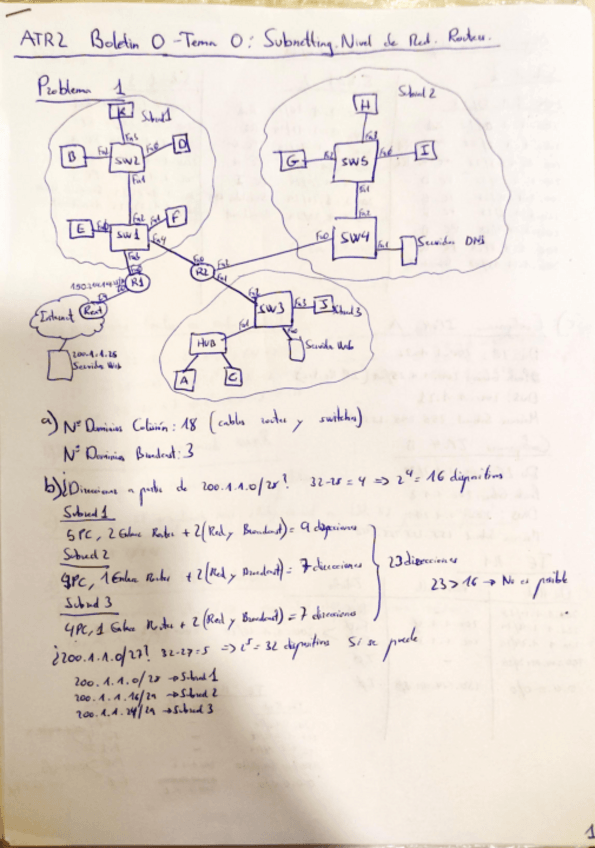 ATR2 Boletin 0 - Tema 0: Subnetting. Nivel de Red. Routers.
Problema 1
K Subred 1
B SW2 D
Fa1
E SW1 F
Fa4
R1
Internet Rext
200.1.1.28
Servidor Web
H Subred 2
G SW5 I
Fa1
SW4 Servidor DNS
R2
SW3 Fa3 J Subred 3
HUB Servidor Web
A C
a) Nº Dominios Colisión: 18 (cables routers y switches)
Nº Dominios Broadcast: 3
b) ¿Direcciones a partir de 200.1.1.0/28? 32-28 = 4 => 2^4 = 16 dispositivos
Subred 1
5 PC, 2 Enlace Router + 2 (Red y Broadcast) = 9 direcciones
Subred 2
4PC, 1 Enlace Router + 2 (Red y Broadcast) = 7 direcciones
23 direcciones
23 > 16 → No es posible
Subred 3
4PC, 1 Enlace Router + 2 (Red y Broadcast) = 7 direcciones
¿200.1.1.0/27? 32-27=5 => 2^5 = 32 dispositivos Sí se puede
200.1.1.0/28 → Subred 1
200.1.1.16/29 → Subred 2
200.1.1.24/29 → Subred 3
1